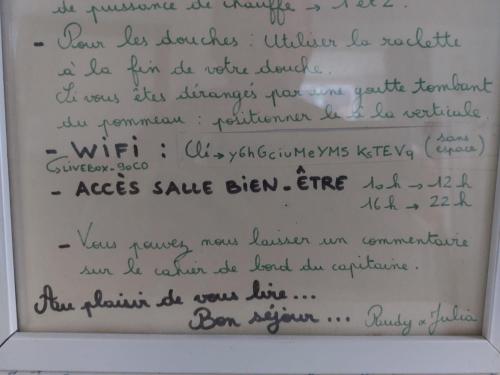 de puissance de chauffe → 1 et 2.
- Pour les douches : Utiliser la raclette
à la fin de votre douche.
Si vous êtes dérangés par une goutte tombant
du pommeau : positionner le à la verticale.
- WiFi : Clé → y6hGciuMeYMS KsTEVq (sans espace)
↳ LIVEBOX_90C0
- ACCÈS SALLE BiEN-ÊTRE 10h → 12h
16h → 22h
- Vous pouvez nous laisser un commentaire
sur le cahier de bord du capitaine.
Au plaisir de vous lire...
Bon séjour... Raudy & Julia